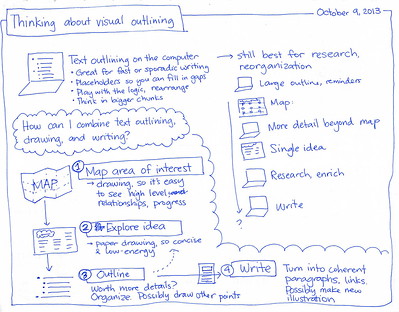 Thinking about visual outlining
October 9, 2013
Text outlining on the computer
• Great for fast or sporadic writing
• Placeholders so you can fill in gaps
• Play with the logic, rearrange
• Think in bigger chunks
→ still best for research,
reorganization
Large outline, reminders
Map
More detail beyond map
Single idea
Research enrich
Write
?
How can I combine text outlining,
drawing, and writing?
MAP
① Map area of interest
→ drawing, so it's easy
to see high level
relationships, progress
② Explore idea
→ paper drawing, so concise
& low-energy
③ Outline
Worth more details?
Organize. Possibly draw other points
④ Write
Turn into coherent
paragraphs, links.
Possibly make new
illustration